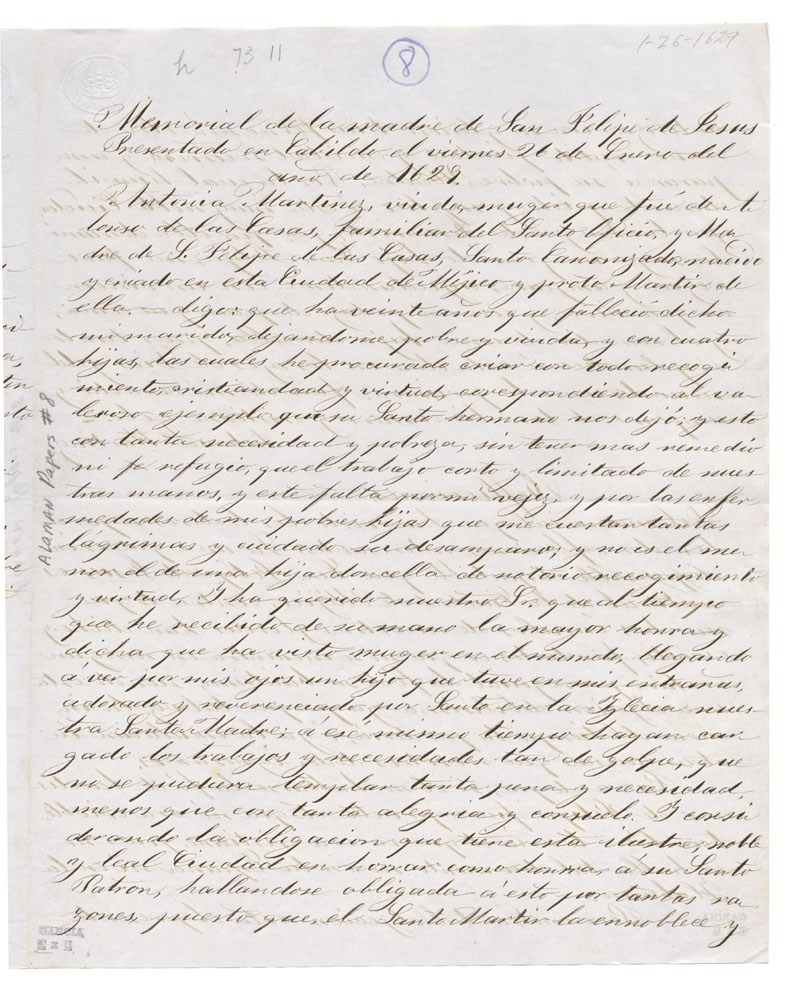 h 73 11
8
1-26-1629
Memorial de la madre de San Felipe de Jesus
Presentado en Cabildo el viernes 26 de Enero del
año de 1629.
Antonia Martinez, viuda, muger que fué de A
lonso de las Casas, familiar del Santo Oficio, y Ma
dre de S. Felipe de las Casas, Santo Canonizado, nacido
y criado en esta Ciudad de Méjico y proto Martir de
ella. — digo: que ha veinte años que falleció dicho
mi marido, dejandome pobre y viuda, y con cuatro
hijas, las cuales he procurado criar con todo recogi
miento, cristiandad y virtud, correspondiendo al va
leroso ejemplo que su Santo hermano nos dejó; y esto
con tanta necesidad y pobreza, sin tener mas remedio
ni refugio, que el trabajo corto y limitado de nues
tras manos, y este falta por mi vejez, y por las enfer
medades de mis pobres hijas que me cuestan tantas
lagrimas y cuidado su desamparo; y no es el me
nor el de una hija doncella de notorio recogimiento
y virtud. I ha querido nuestro Sr. que al tiempo
que he recibido de su mano la mayor honra y
dicha que ha visto muger en el mundo, llegando
á ver por mis ojos un hijo que tuve en mis entrañas,
adorado y reverenciado por Santo en la Iglecia nues
tra Santa Madre; á ese mismo tiempo hayan car
gado los trabajos y necesidades tan de golpe, que
no se pudiera templar tanta pena y necesidad,
menos que con tanta alegria y consuelo. I consi
derando la obligacion que tiene esta ilustre, noble
y leal Ciudad en honrar como honra, á su Santo
Patron, hallandose obligada á esto por tantas ra
zones, puesto que, el Santo Martir la ennoblece y
ALAMAN Papers #8
GARCIA